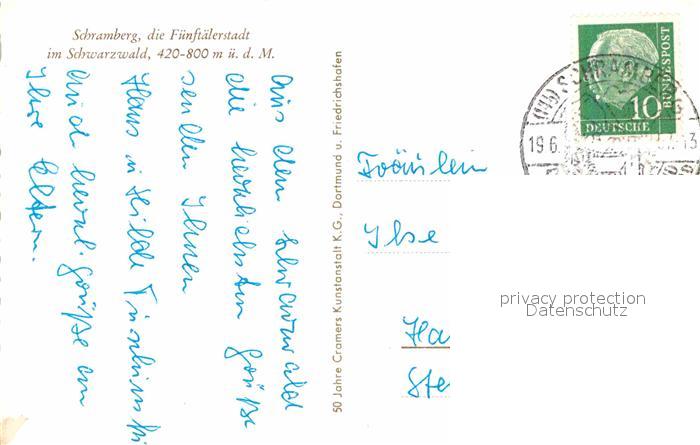 Schramberg, die Fünftälerstadt
im Schwarzwald, 420-800 m ü. d. M.
Aus dem Schwarzwald
die herzlichsten Grüße
senden Ihnen
Hans u. Hilde
Auch herzl. Grüße an
Ihre Eltern.
50 Jahre Cramers Kunstanstalt K.G., Dortmund u. Friedrichshafen
DEUTSCHE
BUNDESPOST
10
SCHRAMBERG
19.6.
13
Fräulein
Ilse
Ha
Ste
privacy protection
Datenschutz